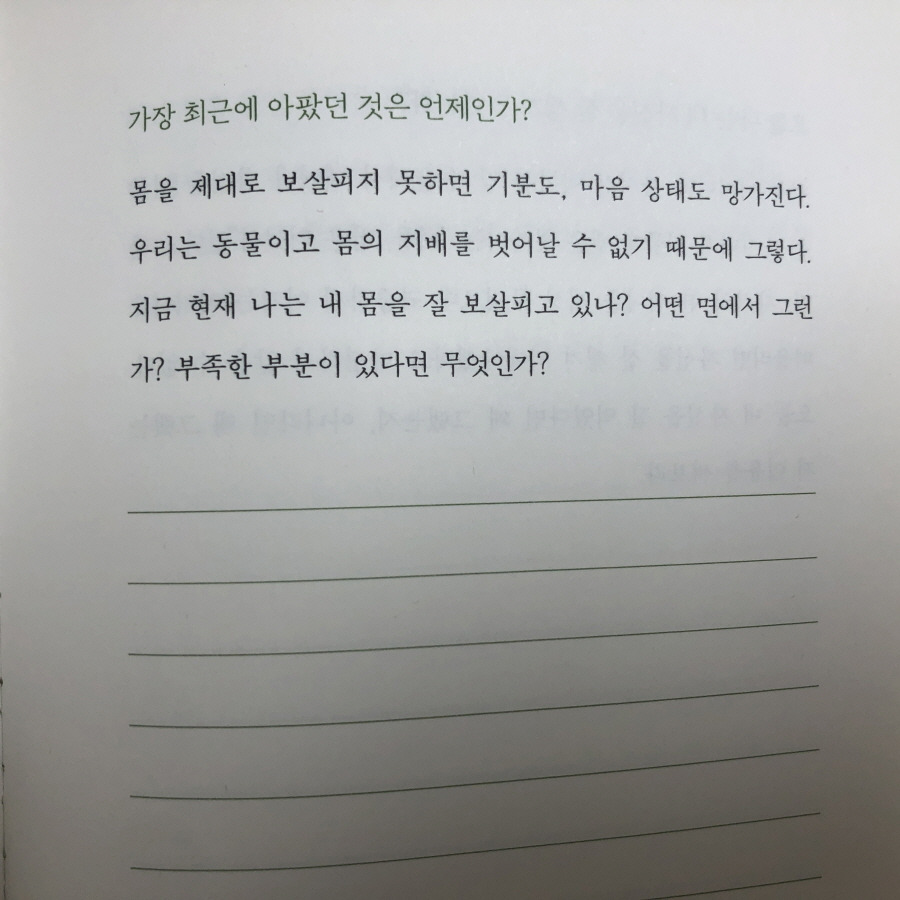 가장 최근에 아팠던 것은 언제인가?
몸을 제대로 보살피지 못하면 기분도, 마음 상태도 망가진다.
우리는 동물이고 몸의 지배를 벗어날 수 없기 때문에 그렇다.
지금 현재 나는 내 몸을 잘 보살피고 있나? 어떤 면에서 그런
가? 부족한 부분이 있다면 무엇인가?